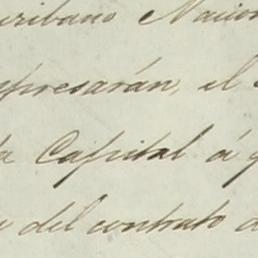 cribano Nacion
xpresarán, el
la Capital á q
o del contrato d